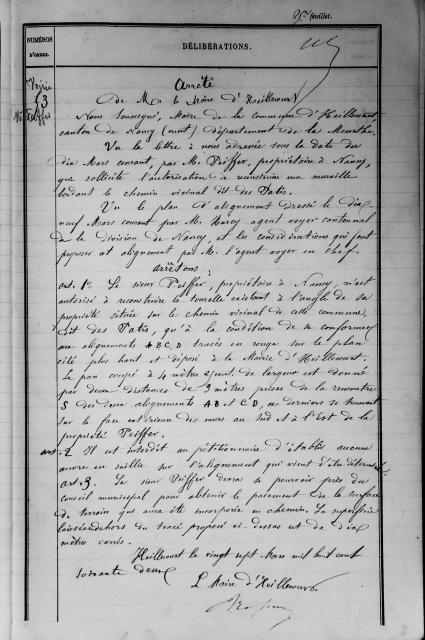 25e feuillet.
NUMÉROS
D'ORDRE.
DÉLIBÉRATIONS.
Voirie
13
Arrêté
De M. le Maire d'Heillecourt
Nous soussigné, Maire de la commune d'Heillecourt,
canton de Nancy (ouest) département de la Meurthe.
Vu la lettre à nous adressée sous la date du
dix Mars courant, par Mr. Peiffer, propriétaire à Nancy,
que sollicite l'autorisation de reconstruire une muraille
bordant le chemin vicinal dit des Patis.
Vu le plan d'alignement dressé le dix
neuf Mars courant par Mr. agent voyer cantonnal
de la division de Nancy, et les considérations qui font
proposer cet alignement par Mr. l'agent voyer en chef.
arrêtons :
art. 1er. Le sieur Peiffer, propriétaire à Nancy, est
autorisé à reconstruire la tourelle existant à l'angle de sa
propriété située sur le chemin vicinal de cette commune,
dit des Patis, qu'à la condition de se conformer
aux alignements A B C, D tracés en rouge sur le plan
cité plus haut et déposé à la Mairie d'Heillecourt.
Le pan coupé à 4 mètres 2 cent. de largeur est donné
par deux distances de 3 mètres prises de la rencontre
S des deux alignements A B et C D, ces derniers se trouvant
sur la face extérieure des murs au Sud et à l'Est de la
propriété Peiffer.
art. 2 Il est interdit au pétitionnaire d'établir aucune
œuvre en saillie sur l'alignement qui vient d'être déterminé.
art. 3. Le sieur Peiffer devra se pourvoir près du
conseil municipal pour obtenir le paiement de la surface
de terrain qui aura été incorporée au chemin. La superficie
laissée en dehors du tracé proposé ci-dessus est de dix
mètres carrés.
Heillecourt le vingt sept Mars mil huit cent
soixante deux
L Maire d'Heillecourt